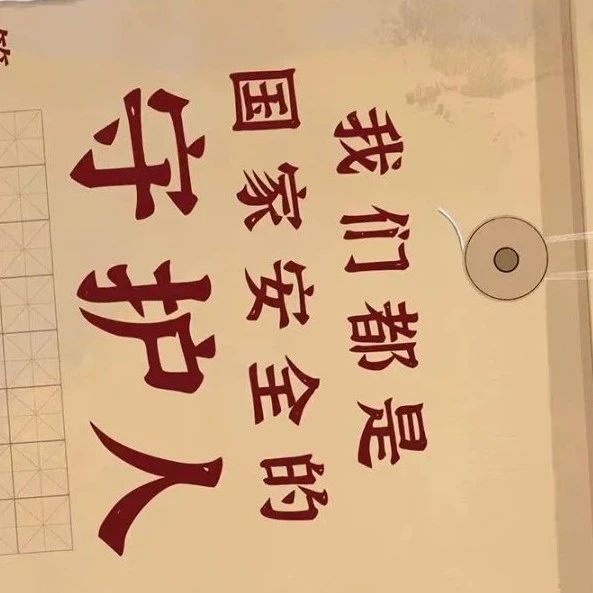 我们都是
国家安全的
守护人